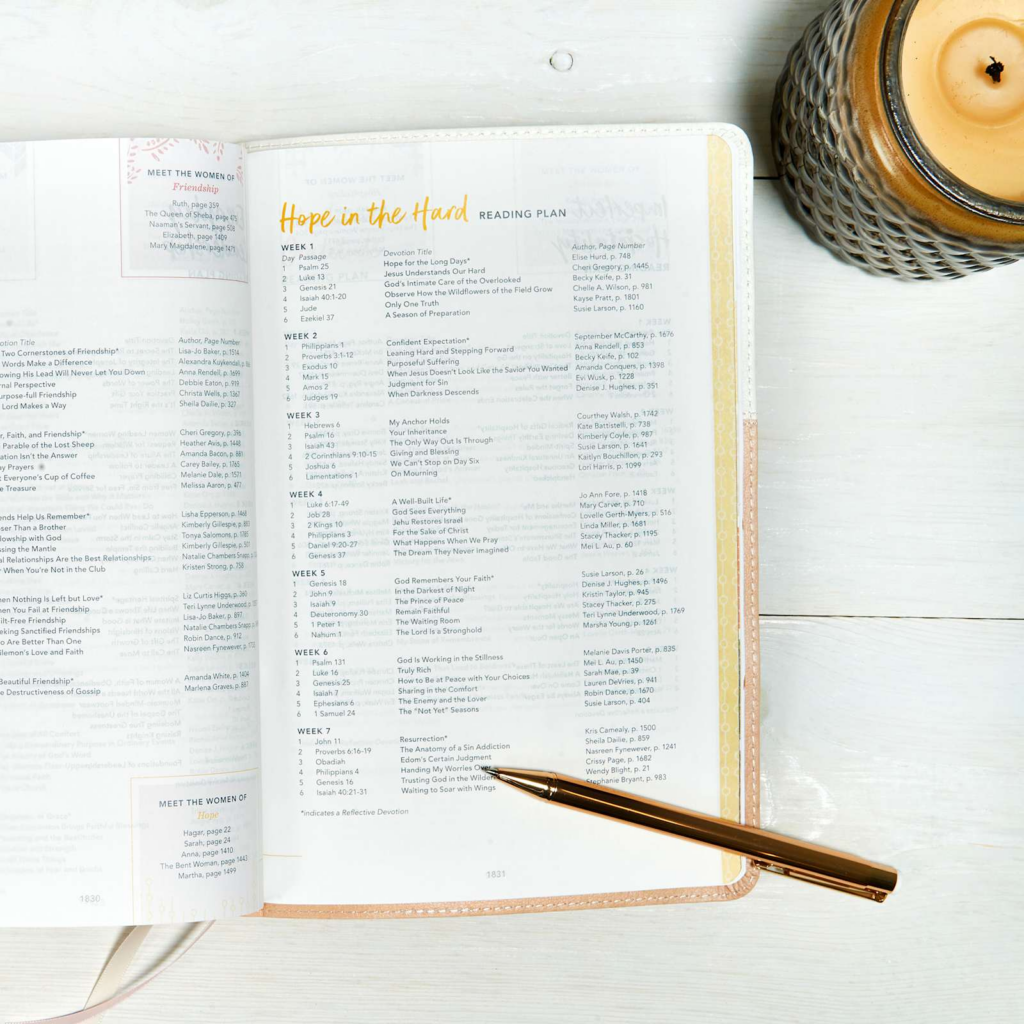 MEET THE WOMEN OF
Friendship
Ruth, page 359
The Queen of Sheba, page 475
Naaman's Servant, page 506
Elizabeth, page 1409
Mary Magdalene, page 1471
otion Title Author, Page Number
Two Cornerstones of Friendship* Lisa-Jo Baker, p. 1514
Words Make a Difference Alexandra Kuykendall, p.
owing His Lead Will Never Let You Down Anna Rendell, p. 1699
nal Perspective Debbie Eaton, p. 919
urpose-full Friendship Christa Wells, p. 1367
Lord Makes a Way Sheila Dailie, p. 321
r, Faith, and Friendship* Cheri Gregory, p. 396
Parable of the Lost Sheep Heather Avis, p. 1448
ation Isn't the Answer Amanda Bacon, p. 881
y Prayers Carey Bailey, p. 1765
t Everyone's Cup of Coffee Melanie Dale, p. 1571
e Treasure Melissa Aaron, p. 477
ends Help Us Remember* Lisha Epperson, p. 1460
ser Than a Brother Kimberly Gillespie, p. 881
lowship with God Tonya Salomons, p.
ssing the Mantle Kimberly Gillespie, p. 501
al Relationships Are the Best Relationships Natalie Chambers Snapp, p.
y When You're Not in the Club Kristen Strong, p. 758
hen Nothing Is Left but Love* Liz Curtis Higgs, p. 360
hen You Fail at Friendship Teri Lynne Underwood, p.
ilt-Free Friendship Lisa-Jo Baker, p. 897
eking Sanctified Friendships Natalie Chambers Snapp, p.
o Are Better Than One Robin Dance, p. 912
ilemon's Love and Faith Nasreen Fynewever, p.
Beautiful Friendship* Amanda White, p. 1404
e Destructiveness of Gossip Marlena Graves, p. 881
MEET THE WOMEN OF
Hope
Hagar, page 22
Sarah, page 24
Anna, page 1410
The Bent Woman, page 1443
Martha, page 1499
1830
Hope in the Hard READING PLAN
WEEK 1
Day Passage Devotion Title Author, Page Number
1 Psalm 25 Hope for the Long Days* Elise Hurd, p. 748
2 Luke 13 Jesus Understands Our Hard Cheri Gregory, p. 1445
3 Genesis 21 God's Intimate Care of the Overlooked Becky Keife, p. 31
4 Isaiah 40:1-20 Observe How the Wildflowers of the Field Grow Chelle A. Wilson, p. 981
5 Jude Only One Truth Kayse Pratt, p. 1801
6 Ezekiel 37 A Season of Preparation Susie Larson, p. 1160
WEEK 2
1 Philippians 1 Confident Expectation* September McCarthy, p. 1676
2 Proverbs 3:1-12 Leaning Hard and Stepping Forward Anna Rendell, p. 853
3 Exodus 10 Purposeful Suffering Becky Keife, p. 102
4 Mark 15 When Jesus Doesn't Look Like the Savior You Wanted Amanda Conquers, p. 1398
5 Amos 2 Judgment for Sin Evi Wusk, p. 1228
6 Judges 19 When Darkness Descends Denise J. Hughes, p. 351
WEEK 3
1 Hebrews 6 My Anchor Holds Courthey Walsh, p. 1742
2 Psalm 16 Your Inheritance Kate Battistelli, p. 738
3 Isaiah 43 The Only Way Out Is Through Kimberly Coyle, p. 987
4 2 Corinthians 9:10-15 Giving and Blessing Susie Larson, p. 1641
5 Joshua 6 We Can't Stop on Day Six Kaitlyn Bouchillon, p. 293
6 Lamentations 1 On Mourning Lori Harris, p. 1099
WEEK 4
1 Luke 6:17-49 A Well-Built Life* Jo Ann Fore, p. 1418
2 Job 28 God Sees Everything Mary Carver, p. 710
3 2 Kings 10 Jehu Restores Israel Lovelle Gerth-Myers, p. 516
4 Philippians 3 For the Sake of Christ Linda Miller, p. 1681
5 Daniel 9:20-27 What Happens When We Pray Stacey Thacker, p. 1195
6 Genesis 37 The Dream They Never Imagined Mei L. Au, p. 60
WEEK 5
1 Genesis 18 God Remembers Your Faith* Susie Larson, p. 26
2 John 9 In the Darkest of Night Denise J. Hughes, p. 1496
3 Isaiah 9 The Prince of Peace Kristin Taylor, p. 945
4 Deuteronomy 30 Remain Faithful Stacey Thacker, p. 275
5 1 Peter 1 The Waiting Room Teri Lynne Underwood, p. 1769
6 Nahum 1 The Lord Is a Stronghold Marsha Young, p. 1261
WEEK 6
1 Psalm 131 God Is Working in the Stillness Melanie Davis Porter, p. 835
2 Luke 16 Truly Rich Mei L. Au, p. 1450
3 Genesis 25 How to Be at Peace with Your Choices Sarah Mae, p. 39
4 Isaiah 7 Sharing in the Comfort Lauren DeVries, p. 941
5 Ephesians 6 The Enemy and the Lover Robin Dance, p. 1670
6 1 Samuel 24 The "Not Yet" Seasons Susie Larson, p. 404
WEEK 7
1 John 11 Resurrection* Kris Camealy, p. 1500
2 Proverbs 6:16-19 The Anatomy of a Sin Addiction Sheila Dailie, p. 859
3 Obadiah Edom's Certain Judgment Nasreen Fynewever, p. 1241
4 Philippians 4 Handing My Worries Crissy Page, p. 1682
5 Genesis 16 Trusting God in the Wilde Wendy Blight, p. 21
6 Isaiah 40:21-31 Waiting to Soar with Wings Stephanie Bryant, p. 983
*indicates a Reflective Devotion
1831